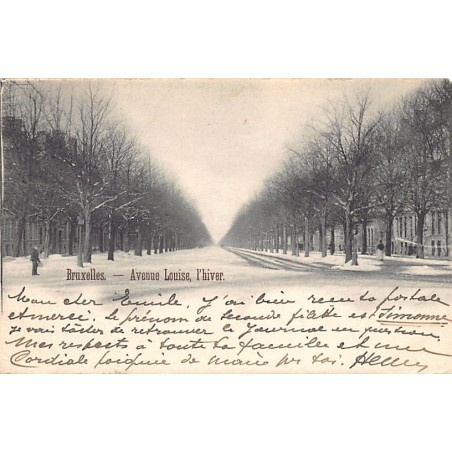 Bruxelles. — Avenue Louise, l'hiver.
Mon cher Emile, J'ai bien reçu ta postale
et merci. Le prénom de seconde fillette est Simonne
je vais tâcher de retrouver le journal en question.
Mes respects à toute ta famille et une
Cordiale poignée de main pr toi.